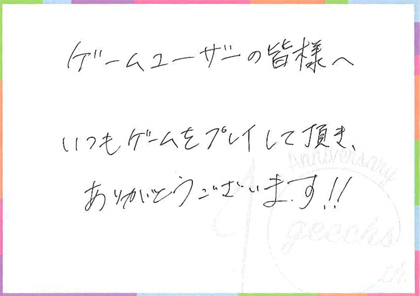 ゲームユーザーの皆様へ
いつもゲームをプレイして頂き、
ありがとうございます!!
Anniversary
geechs
th